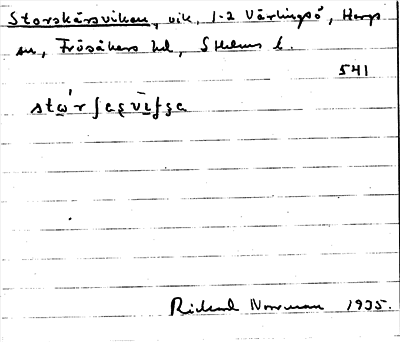 Storskärsviken, vik, 1-2 Värlingsö, Hargs
sn, Frösåkers hd, Sthlms l.
541
Rickard Norrman 1935.